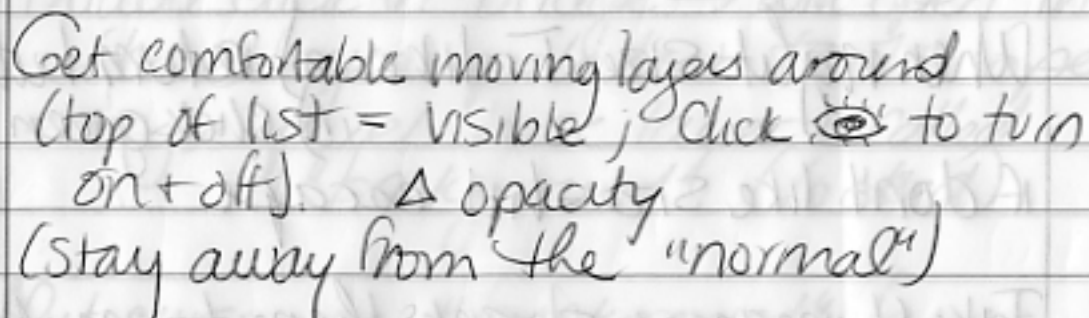 Get comfortable moving layers around
(top of list = visible; Click 👁 to turn
on + off). Δ opacity
(stay away from the "normal")